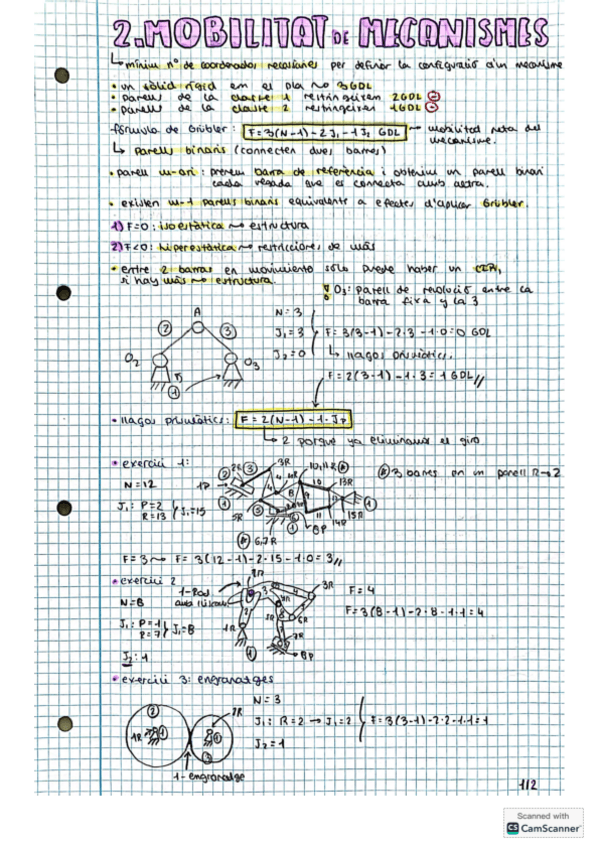 2. MOBILITAT DE MECANISMES
mínim nº de coordenades necessàries per definir la configuració d'un mecanisme
• un sòlid rígid em el pla ~> 3GDL
• parells de la classe 1 restringeixen 2GDL ⊖
• parells de la classe 2 restringeixen 1GDL ⊖
fórmula de Grübler: F=3(N-1)-2J₁-1J₂ GDL → mobilitat neta del mecanisme.
↳ parells binaris (connecten dues barres)
• parell m-ari: prenem barra de referència i obtenim un parell binari
cada vegada que es connecta amb altra.
• existen m-1 parells binaris equivalente a efectes d'aplicar Grübler.
1) F=0: isoestàtica ~> estructura
2) F<0: hiperestàtica ~> restricciones de más
• entre 2 barras en movimiento sólo puede haber un CIR,
si hay más ~> estructura.
O₃: parell de revolució entre la
barra fixa y la 3
A
2
3
O₂
O₃
1
N=3
J₁=3
J₂=0
F=3(3-1)-2·3-1·0=0 GDL
↳ llaços prismàtics.
F=2(3-1)-1·3=1GDL//
• llaços prismàtics: F=2(N-1)-1·Jp
↳ 2 porque ya eliminamos el giro
• exercici 1:
N=12
J₁: P=2
R=13
J₁=15
1P
2R
3R
4R
5R
6,7R
8P
10,11R
13R
14R
15R
3 barres en un parell R→2
F=3 ~> F=3(12-1)-2·15-1·0=3//
• exercici 2
N=8
J₁: P=1
R=7
J₁=8
J₂: 1
1R
2R
3R
4R
5R
6R
7R
8P
F=4
F=3(8-1)-2·8-1·1=4
• exercici 3: engranatges
2
1R
1
2R
1
3
1-engranatge
N=3
J₁: R=2 → J₁=2
J₂=1
F=3(3-1)-2·2-1·1=1
1/2
Scanned with
CS CamScanner